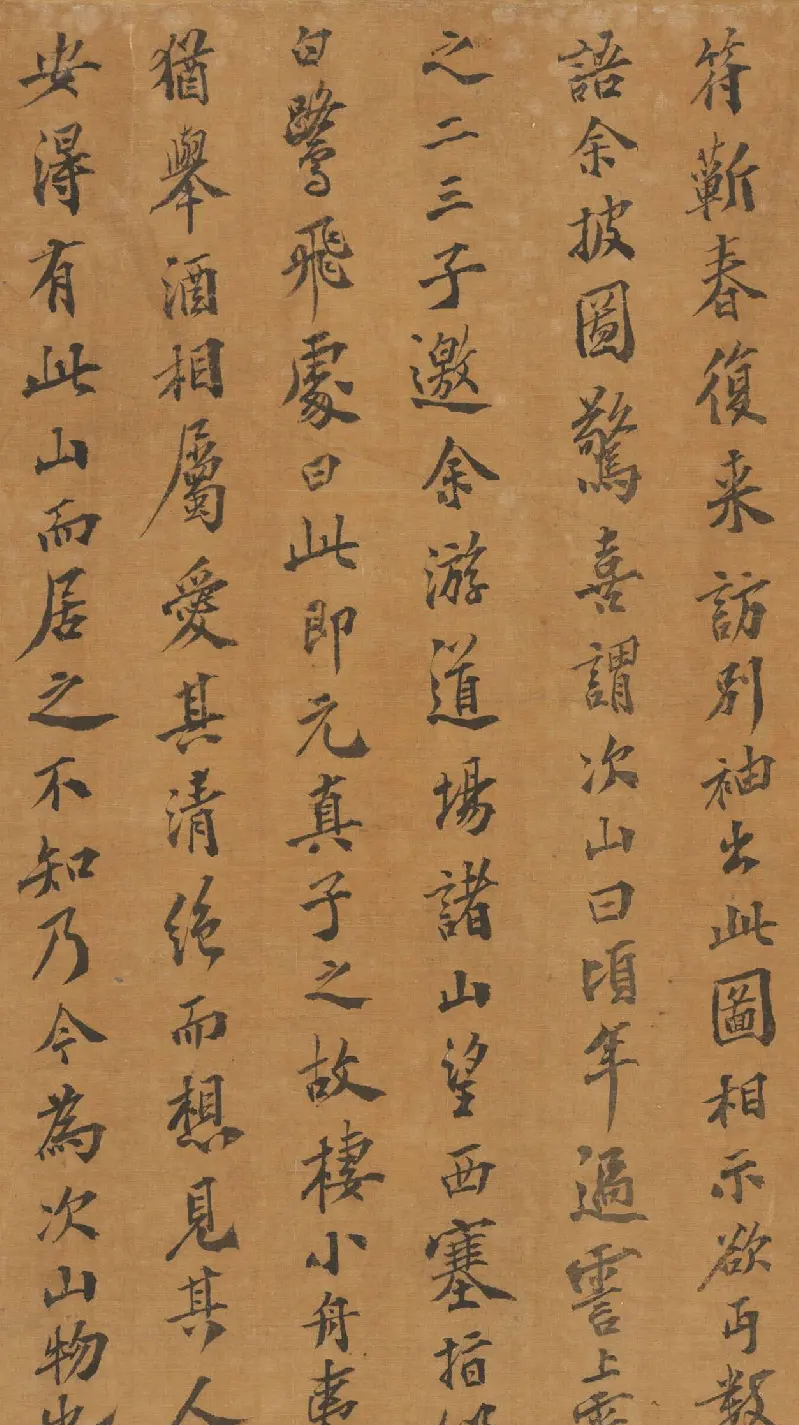 符蘄春復来訪別袖出此圖相示欲丐數
語余披圖驚喜謂次山曰頃年過霅上
之二三子邀余游道場諸山望西塞指
白鷺飛處曰此即元真子之故棲小舟
猶舉酒相屬愛其清絶而想見其人
安得有此山而居之不知乃今為次山物